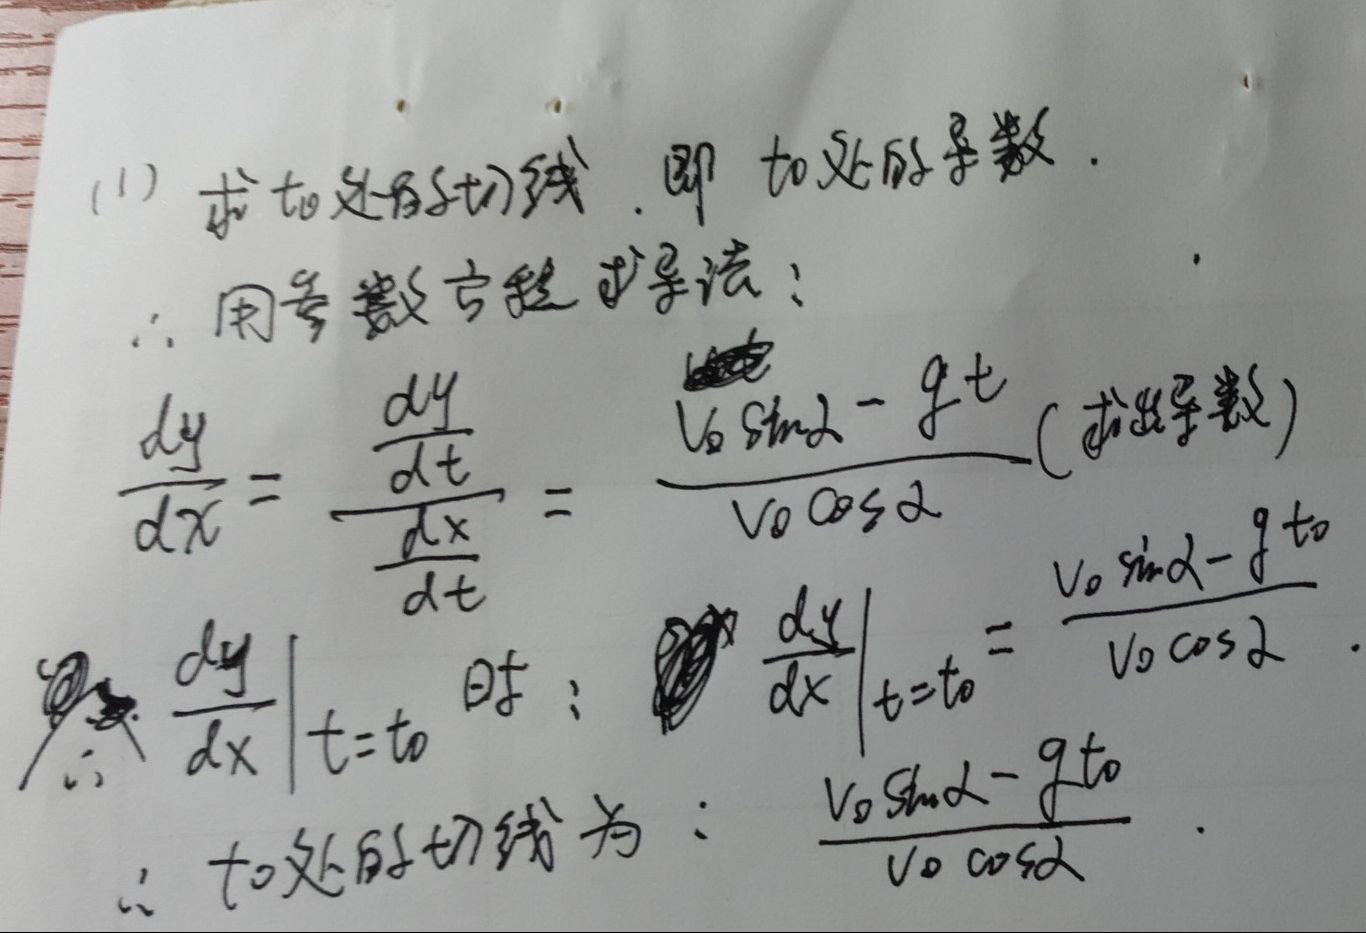 (1) 求 t₀ 处的切线. 即 t₀ 处的导数.
∴ 用参数方程求导法:
dy/dx = (dy/dt)/(dx/dt) = (v₀ sinα - gt)/(v₀ cosα) (求出导数)
∴ dy/dx|t=t₀ 时: dy/dx|t=t₀ = (v₀ sinα - gt₀)/(v₀ cosα).
∴ t₀ 处的切线为: (v₀ sinα - gt₀)/(v₀ cosα).